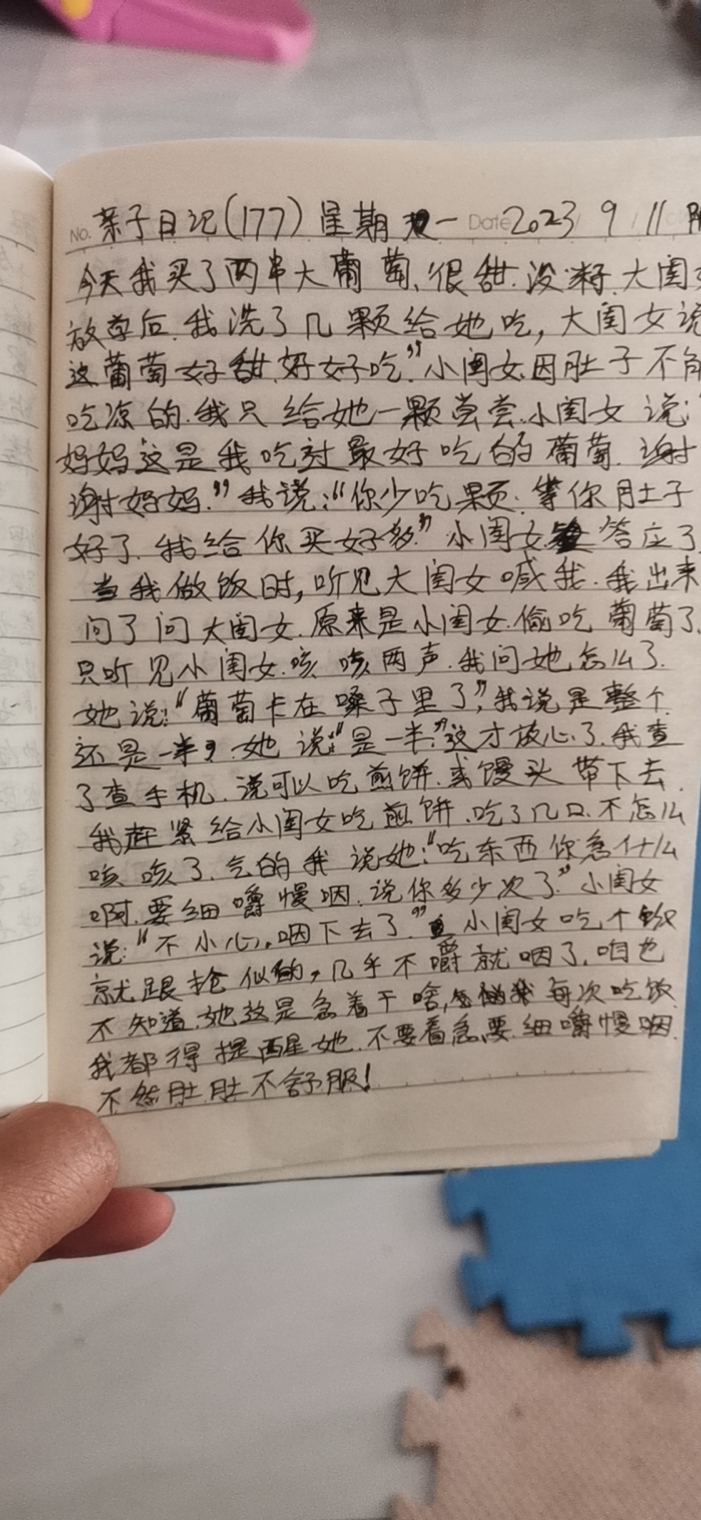 No. 亲子日记(177) 星期一 Date 2023 9 11
今天我买了两串大葡萄、很甜.没籽.大闺
放学后.我洗了几颗给她吃,大闺女说
这葡萄好甜.好好吃."小闺女因肚子不能
吃凉的.我只给她一颗尝尝.小闺女说:"
妈妈这是我吃过最好吃的葡萄.谢
谢妈妈."我说:"你少吃颗.等你肚子
好了.我给你买好多"小闺女答应了
当我做饭时,听见大闺女喊我.我出来
问了问大闺女.原来是小闺女.偷吃葡萄了.
只听见小闺女.咳咳两声.我问她怎么了.
她说:"葡萄卡在嗓子里了",我说是整个
还是一半?她说:"是一半."这才放心了.我查
了查手机.说可以吃煎饼.或馒头带下去.
我赶紧给小闺女吃煎饼.吃了几口.不怎么
咳咳了.气的我说她:"吃东西你急什么
啊.要细嚼慢咽.说你多少次了."小闺女
说:"不小心.咽下去了"小闺女吃个饭
就跟抢似的,几乎不嚼就咽了.咱也
不知道.她这是急着干啥,每次吃饭
我都得提醒她.不要着急.要.细嚼慢咽.
不然肚肚不舒服!